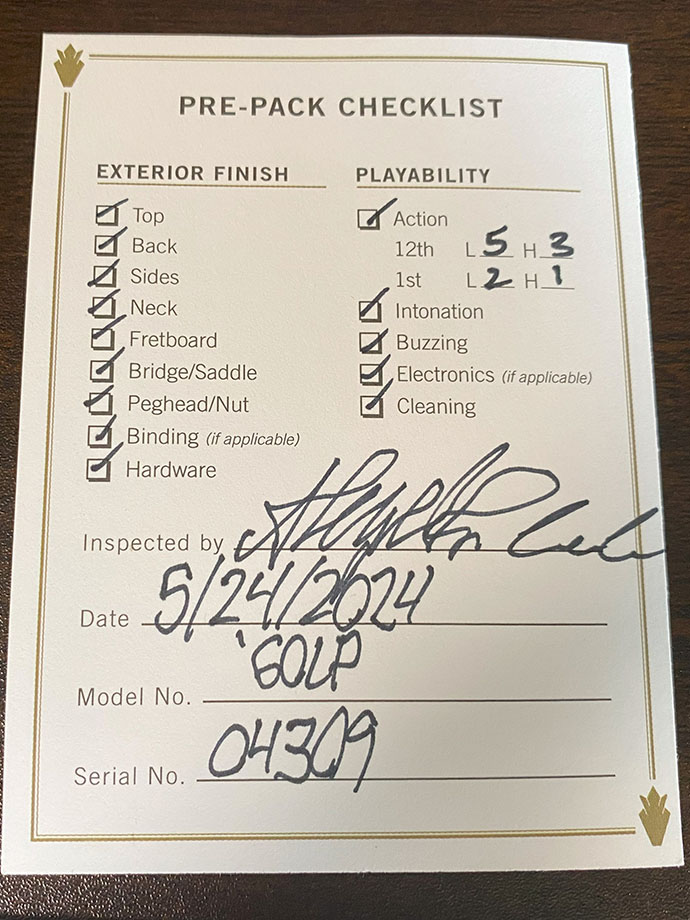 PRE-PACK CHECKLIST
EXTERIOR FINISH
Top
Back
Sides
Neck
Fretboard
Bridge/Saddle
Peghead/Nut
Binding (if applicable)
Hardware
PLAYABILITY
Action
12th L 5 H 3
1st L 2 H 1
Intonation
Buzzing
Electronics (if applicable)
Cleaning
Inspected by
Date 5/24/2024
Model No. '60LP
Serial No. 04309